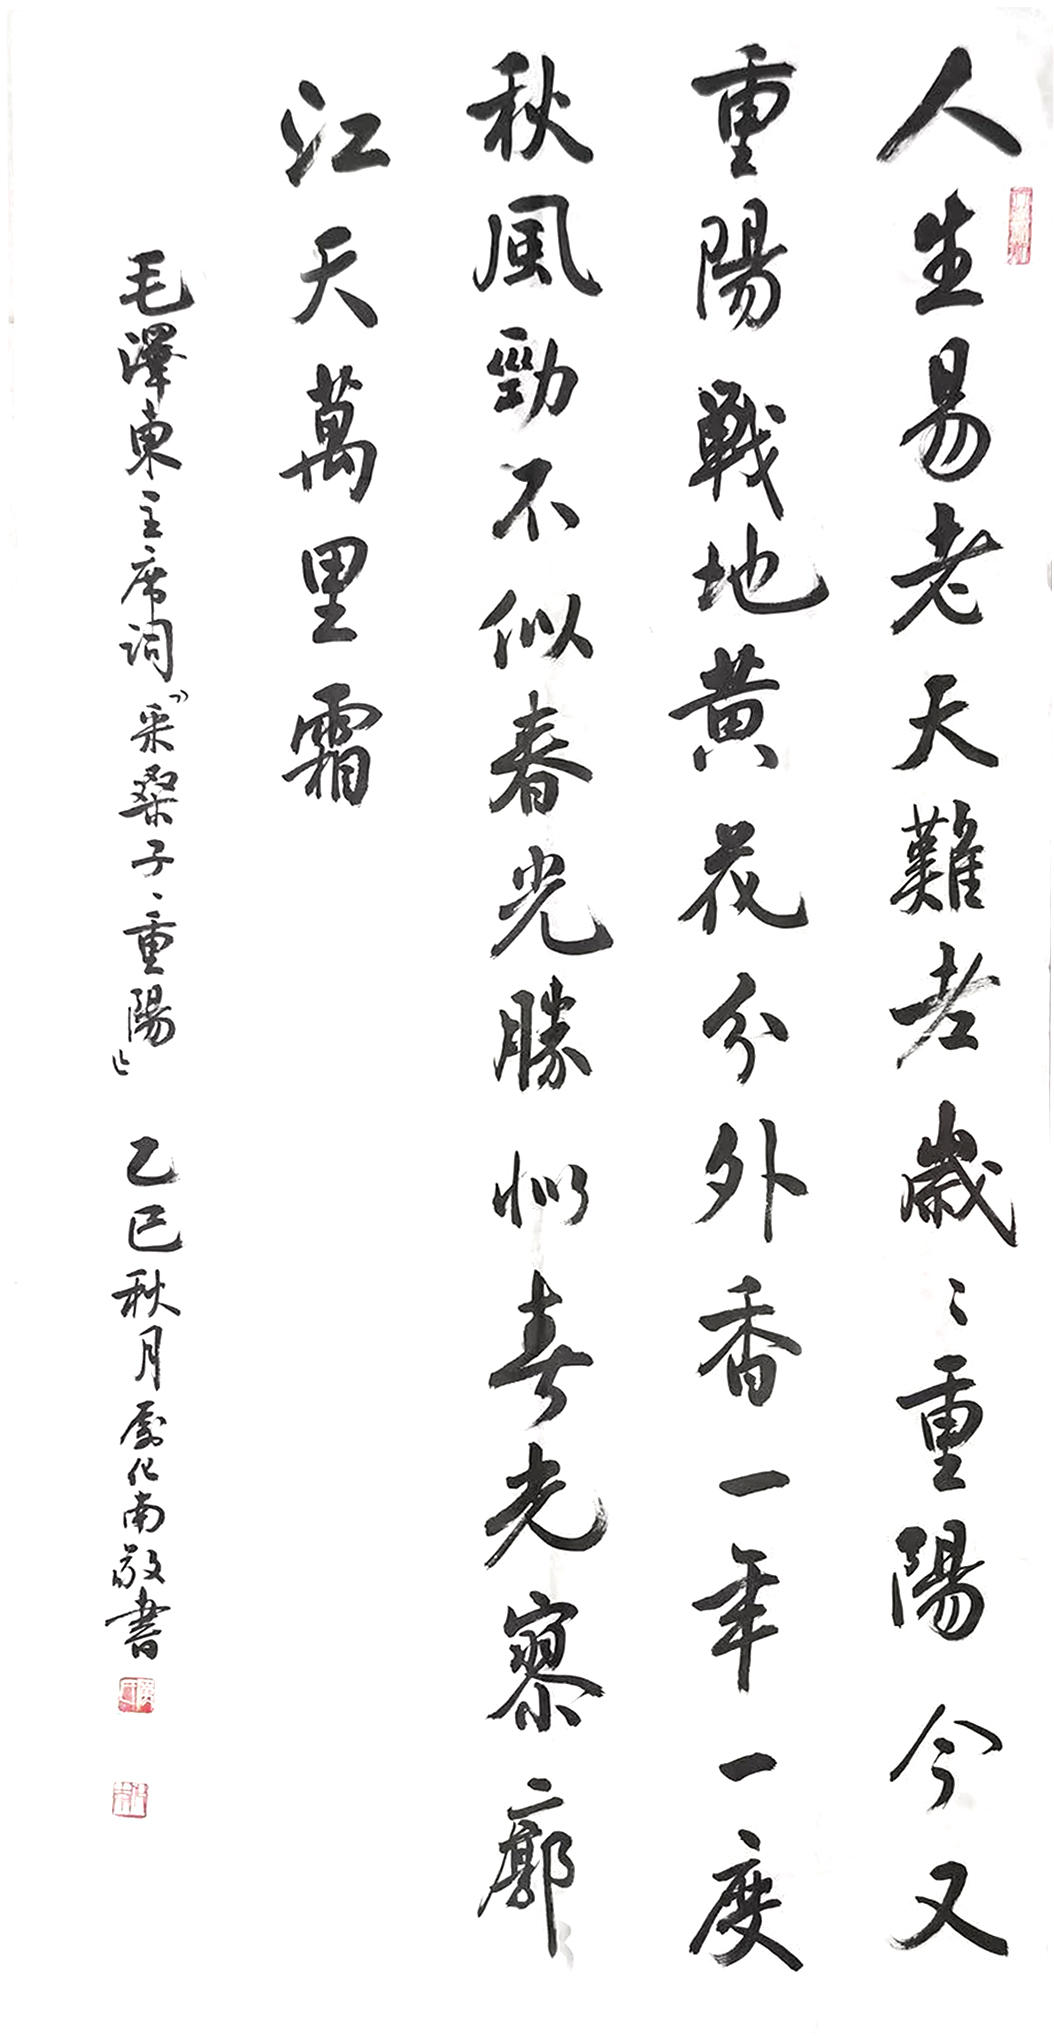 人生易老天難老歲〻重陽今又
重陽戰地黄花分外香一年一度
秋風勁不似春光勝似春光寥廓
江天萬里霜
毛澤東主席詞『采桑子、重陽』乙巳秋月 化南敬書